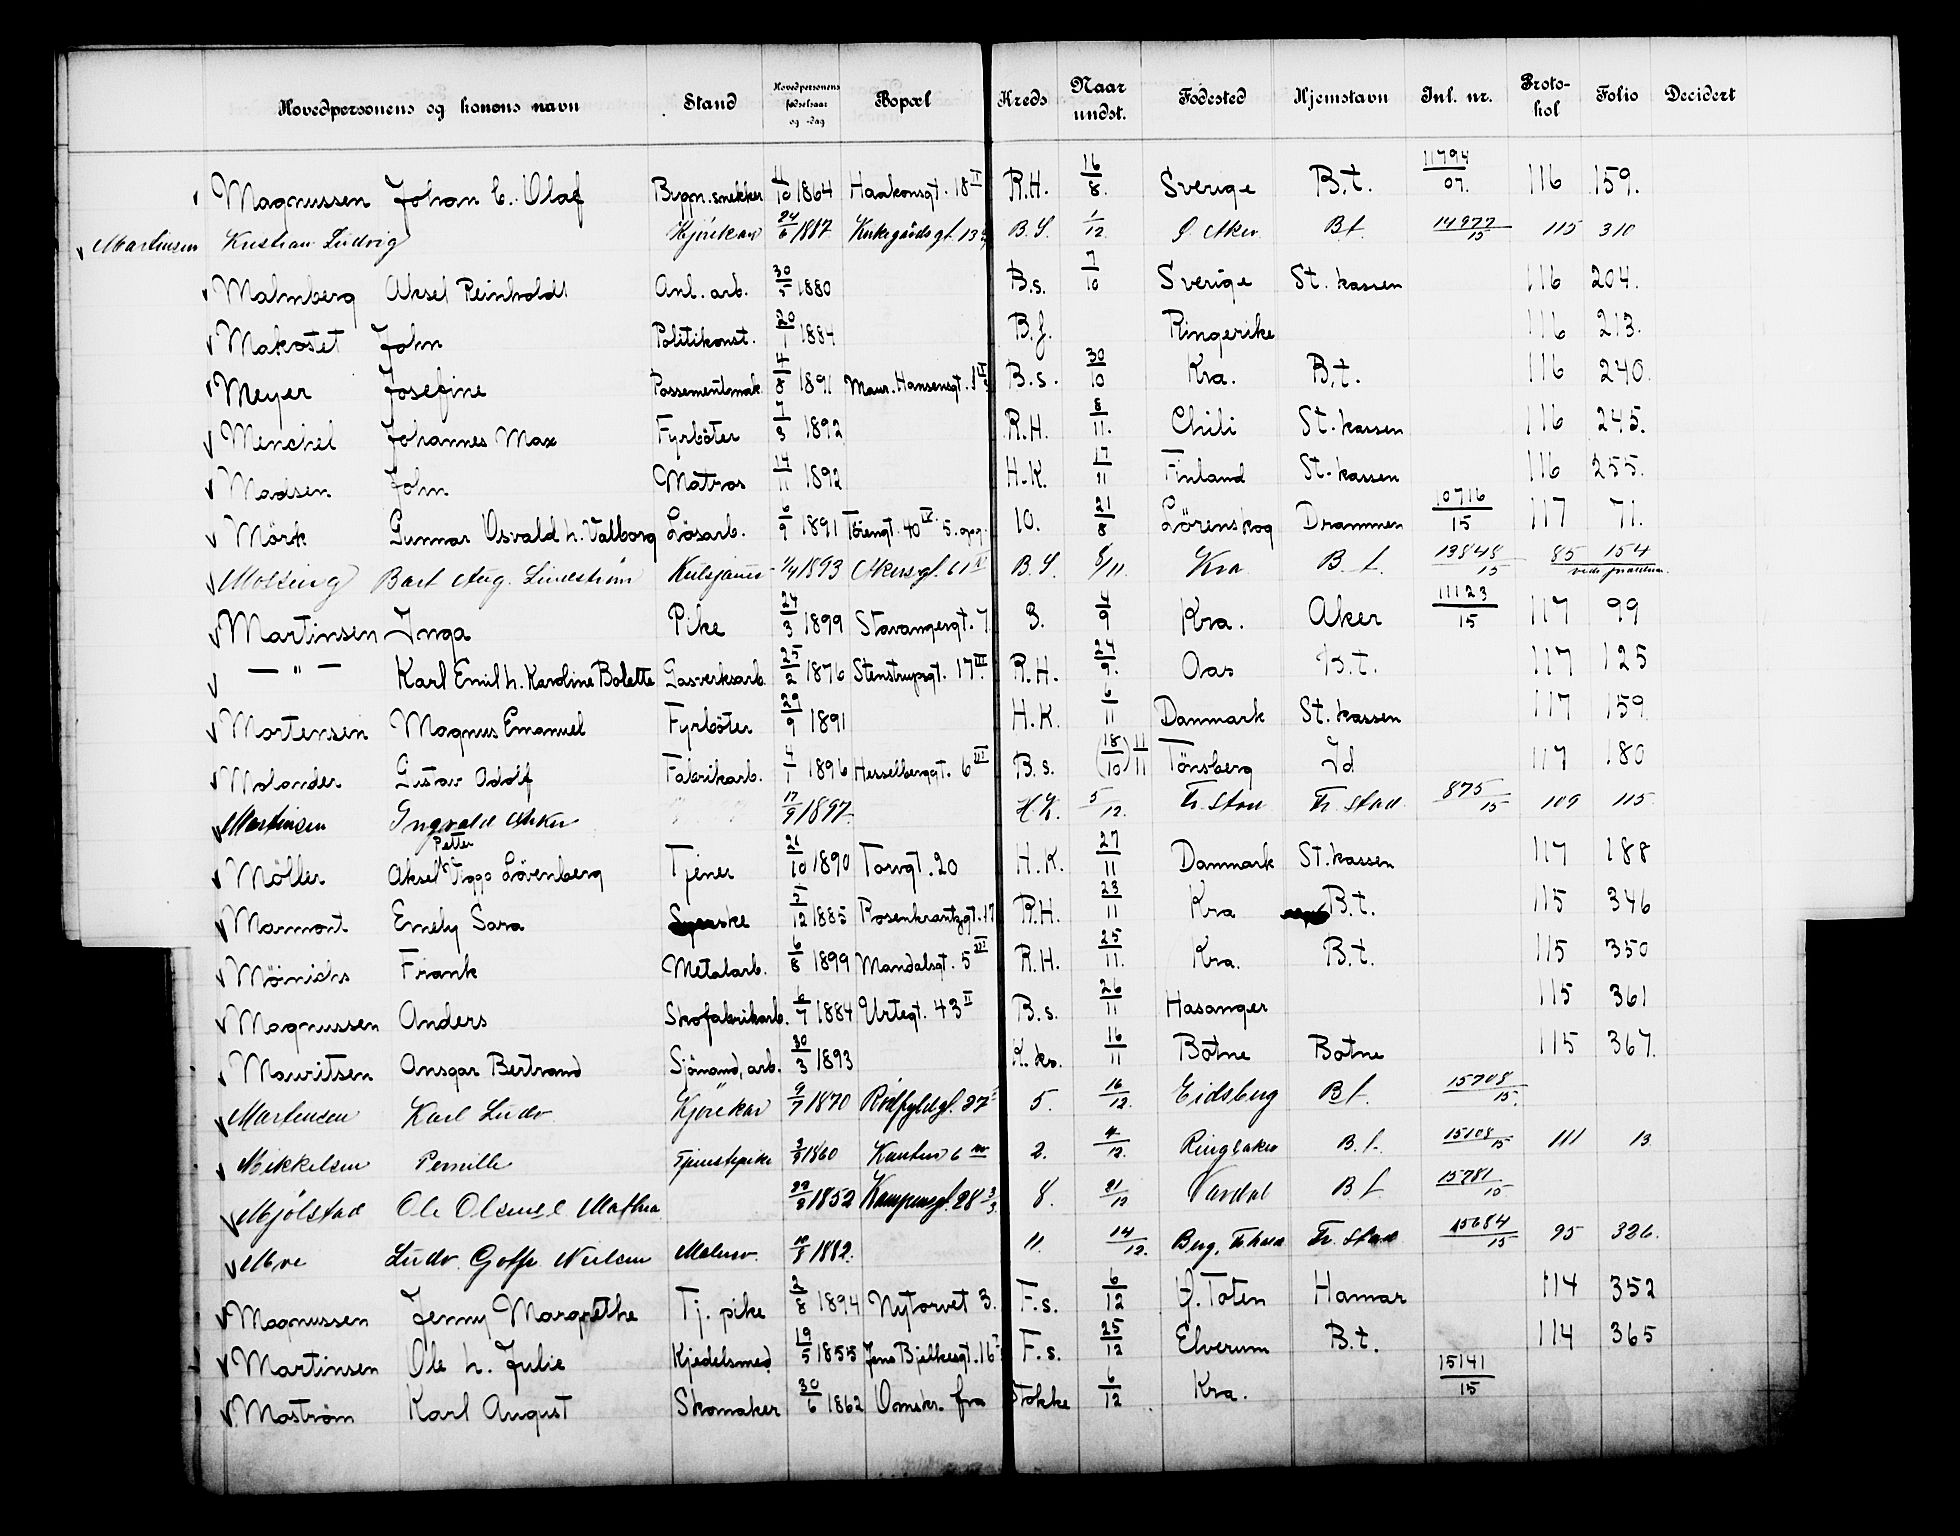 Hovedpersonens og konens navn Stand Hovedpersonens fødselsaar og -dag Bopæl Kreds Naar undst. Fødested Hjemstavn Inl. nr. Proto-kol Folio Decidert
Magnussen Johan C. Olaf Bygn. snekker 4/10 1864 Haakonsgt. 18 II R.H. 16/8. Sverige B.t. 11794/07. 116 159.
Martinsen Kristian Ludvig Kjørekar 24/6 1887 Kirkegårdsgt. 13 B.S. 1/12 Ø. Aker B.t. 14977/15 115 310
Malmberg Aksel Reinholdt Anl. arb. 30/5 1880 B.s. 7/10 Sverige St. kassen 116 204.
Makostet John Politikonst. 20/1 1884 B.f. Ringerike 116 213.
Meyer Josefine Possementmak. 4/8 1891 Maur. Hansensgt. B.s. 30/10 Kra. B.t. 116 240.
Menchel Johannes Max Fyrbøter 7/3 1892 R.H. 8/11. Chili St. kassen 116 245.
Madsen John Matros 14/11 1892 H.K. 17/11 Finland St. kassen 116 255.
Mörk Gunnar Osvald h. Valborg Løsarb. 6/9 1891 Töiengt. 40 IV 5. opg. 10. 21/8 Lörenskog Drammen 10716/15 117 71.
Bart Aug. Lindström 1/4 1893 Akersgt. 61 II B.S. 8/11. Kra B.t. 13848/15 85 154
Martinsen Inga Pike 24/3 1899 Stavangergt. 7 3. 4/9 Kra. Aker 11123/15 117 99
— " — Karl Emil h. Karoline Bolette Gasverksarb. 25/2 1876 Stenstrupsgt. 17 III R.H. 24/9. Oas B.t. 117 125
Mortensen Magnus Emanuel Fyrböter 29/9 1891 H.K. 6/11 Danmark St. kassen 117 159.
Molander Gustav Adolf Fabrikarb. 4/1 1896 Hesselberggt. 6 III B.s. (18/10) 11/11 Tönsberg Id 117 180
Martinsen Ingvald Asker 17/9 1897. H.K. 5/12. Fr. stad Fr. stad 875/15 109 115
Möller Aksel Petter Viggo Lövenberg Tjener 21/10 1890 Torvgt. 20 H.K. 27/11 Danmark St. kassen 117 188
Mamont Emely Sara 5/12 1885 Rosenkrantzgt. 17 R.H. 23/11 Kra B.t. 115 346
Möinichs Frank Metalarb. 6/8 1899 Mandalsgt. 5 III R.H. 25/11. Kra. B.t. 115 350
Magnussen Anders Skofabrikarb. 6/7 1884 Urtegt. 43 II B.s. 26/11 Hasanger 115 361
Mauritsen Ansgar Bertrand Sjömand, arb. 30/3 1893 K.ks. 16/11 Botne Botne 115 367.
Martensen Karl Ludv. Kjørekar 9/7 1870 Rödfyldgt. 27 5. 16/12. Eidsberg B.t. 15708/15.
Mikkelsen Pernille Tjenestepike 3/9 1860 2. 4/12. Ringsaker B.t. 15108/15 111 13
Mjölstad Ole Olsen & Mathea 22/8 1852 Kampensgt. 28 3/3. 8. 21/12 Vardal B.t. 15781/15
Moe Ludv. Nielsen 10/8 1882. 11. 14/12. Fr. stad 15684/15 95 326.
Magnussen Jenny Margrethe Tj. pike 2/8 1894 Nytorvet 3. F.s. 6/12 Ø. Toten Hamar 114 352
Martinsen Ole h. Julie Kjedelsmed 19/5 1855 Jens Bjelkesgt. 16 F.s. 25/12 Elverum B.t. 114 365
Moström Karl August Skomaker 30/6 1862 Omskr. fra Stokke 6/12 Kra. 15141/15